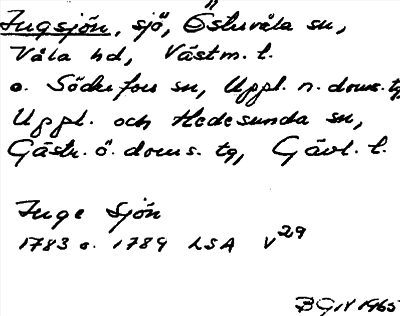 Ingsjön, sjö, Östervåla sn,
Våla hd, Västm. l.
o. Söderfors sn, Uppl. n. doms. tg,
Uppl. och Hedesunda sn,
Gästr. ö. doms. tg, Gävl. l.
Inge Sjön
1783 o. 1789 LSA V29
BGIV 1965